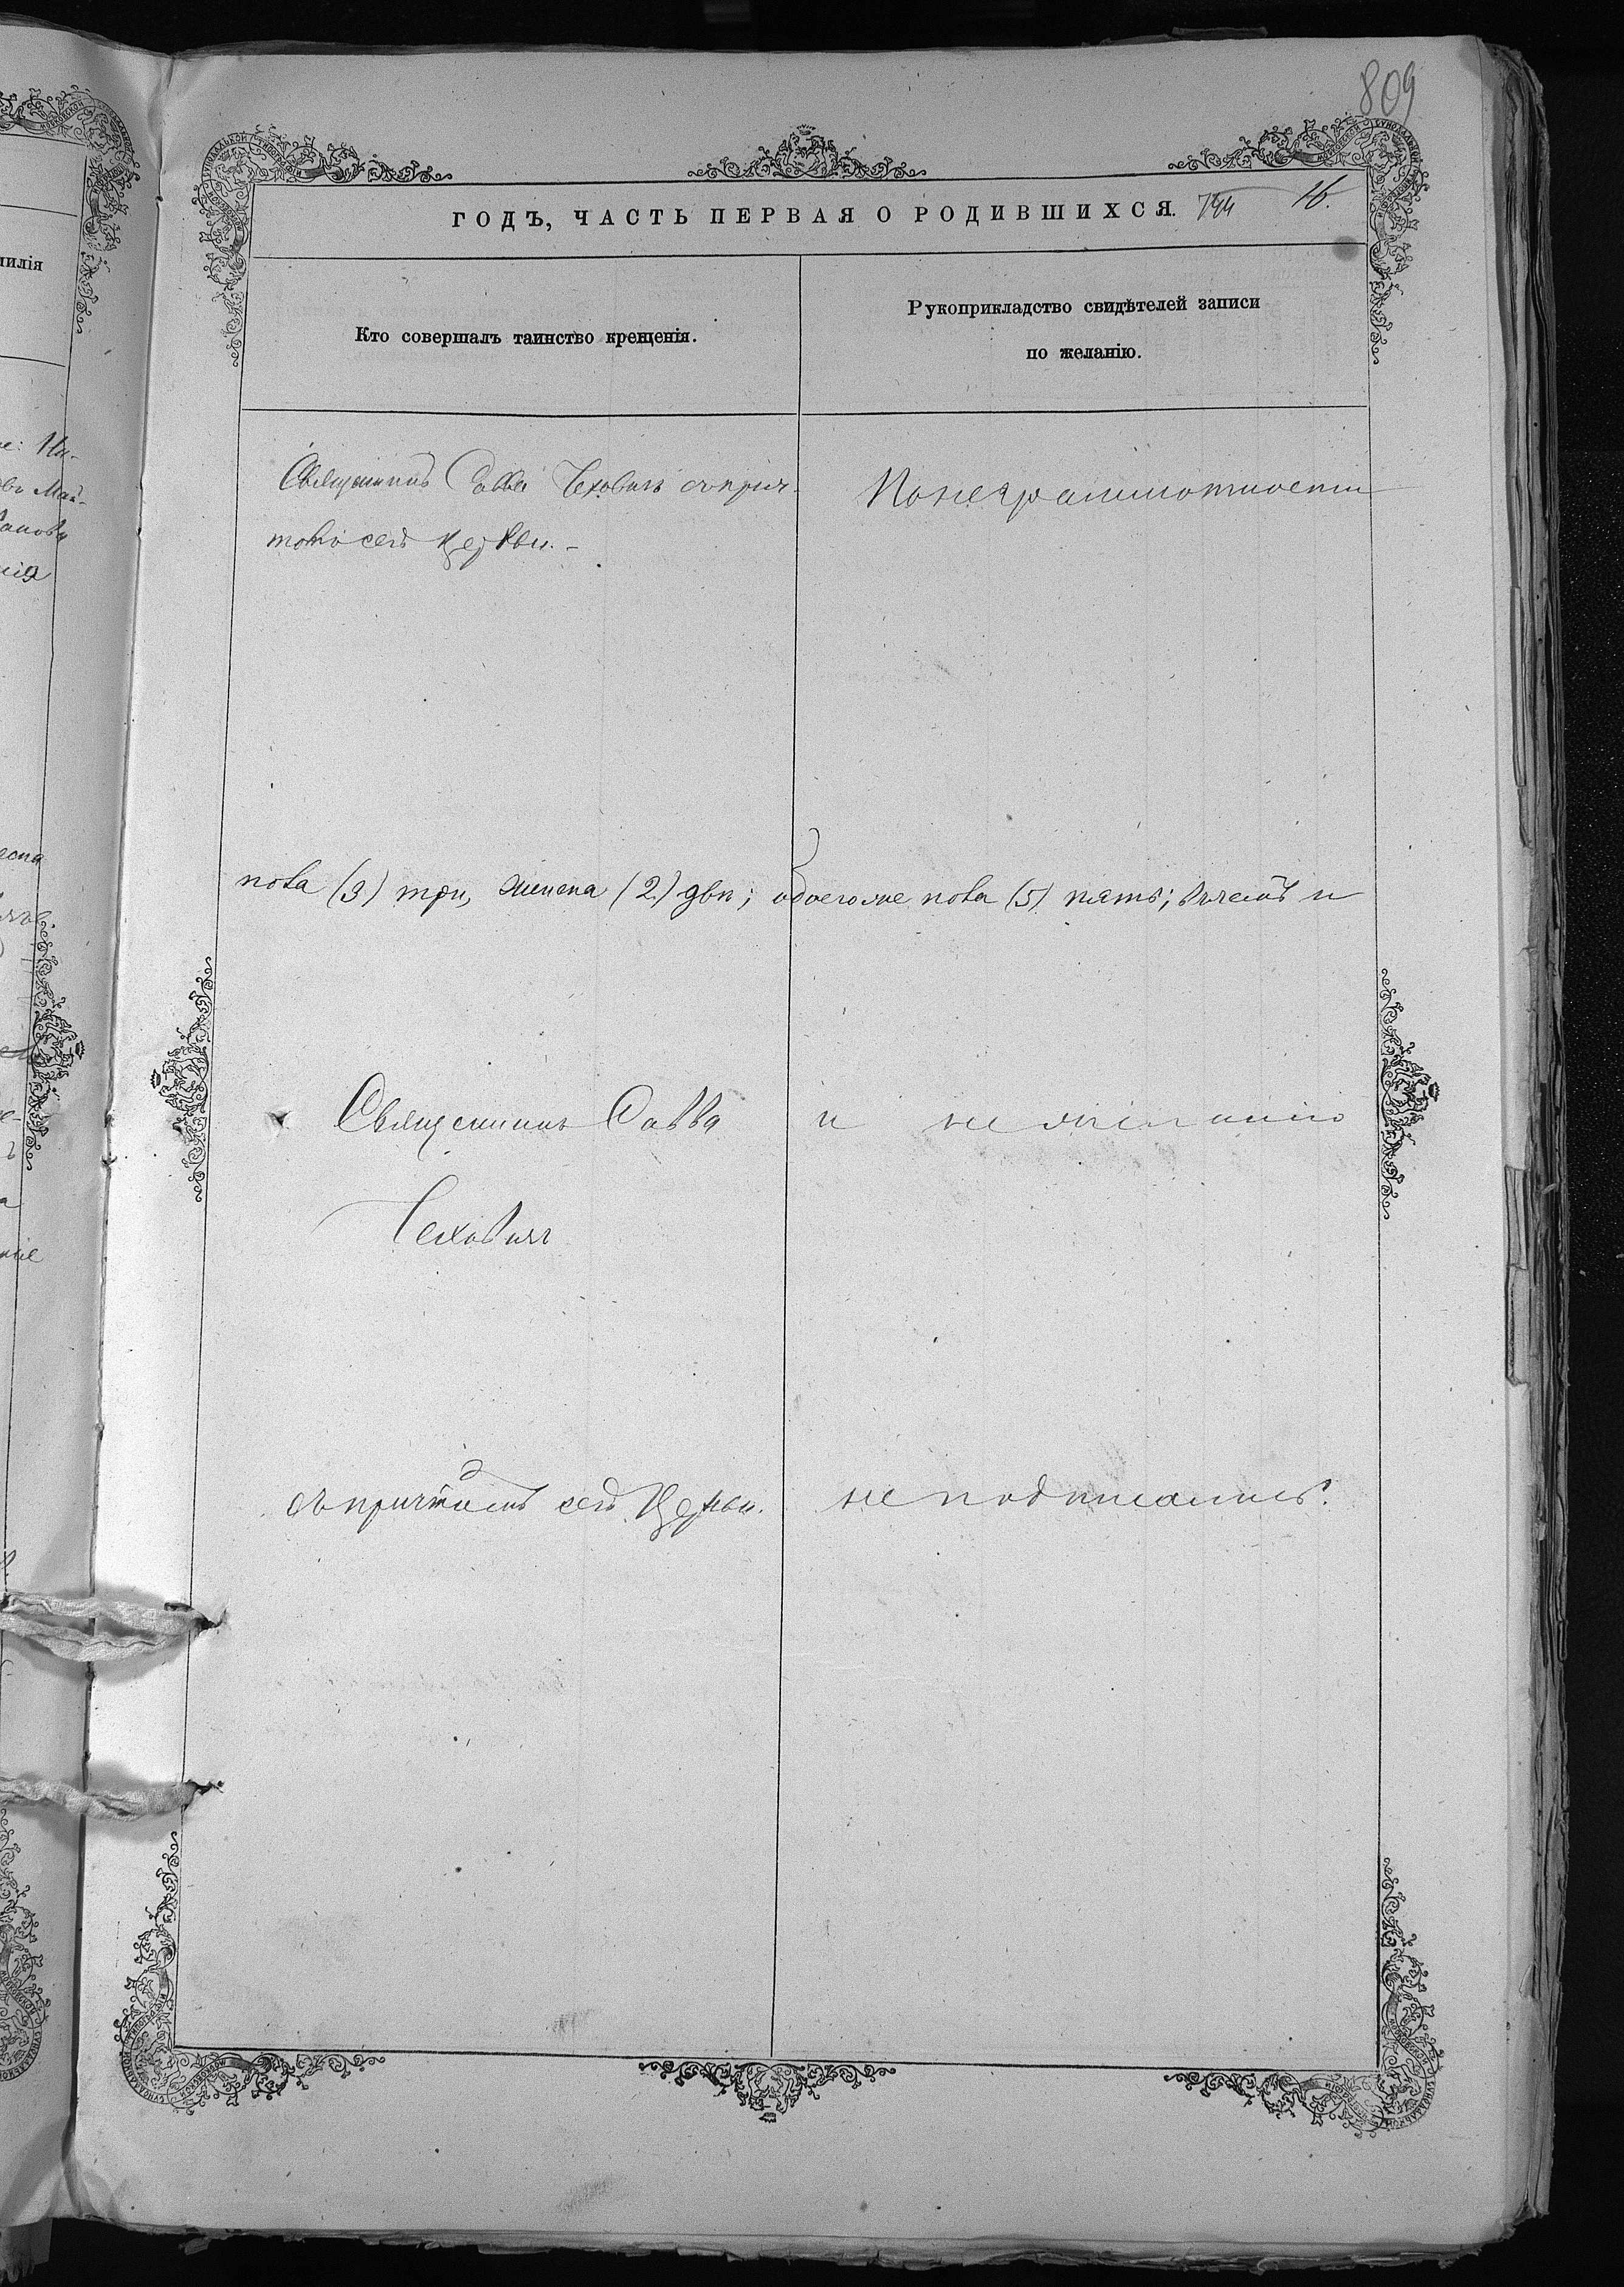 809
ГОДЪ, ЧАСТЬ ПЕРВАЯ О РОДИВШИХСЯ. 744 16.
Кто совершалъ таинство крещенія.
Рукоприкладство свидѣтелей записи
по желанію.
Священникъ Савва Чеховичъ съ прич-
томъ сей Церкви. -
По неграммотности
пола (3) три, женска (2) два; обоегоже пола (5) пять; въ чемъ и
Священникъ Савва
Чеховичъ
и не
съ причтомъ сей Церкви.
не подписались.